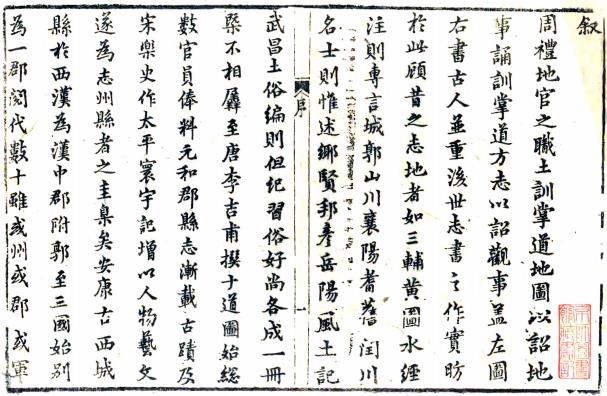 叙
周禮地官之職土訓掌道地圖以詔地
事誦訓掌道方志以詔觀事盖左圖
右書古人並重後世志書之作實昉
於此顧昔之志地者如三輔黄圖水經
注則專言城郭山川襄陽耆舊閏川
名士則惟述鄉賢邦彥岳陽風土記
序
一
武昌土俗編則但紀習俗好尚各成一冊
槩不相羼至唐李吉甫撰十道圖始總
數官員俸料元和郡縣志漸載古蹟及
宋樂史作太平寰宇記增以人物藝文
遂為志州縣者之圭臬矣安康古西城
縣於西漢為漢中郡附郭至三國始別
為一郡閱代數十雖或州或郡或軍